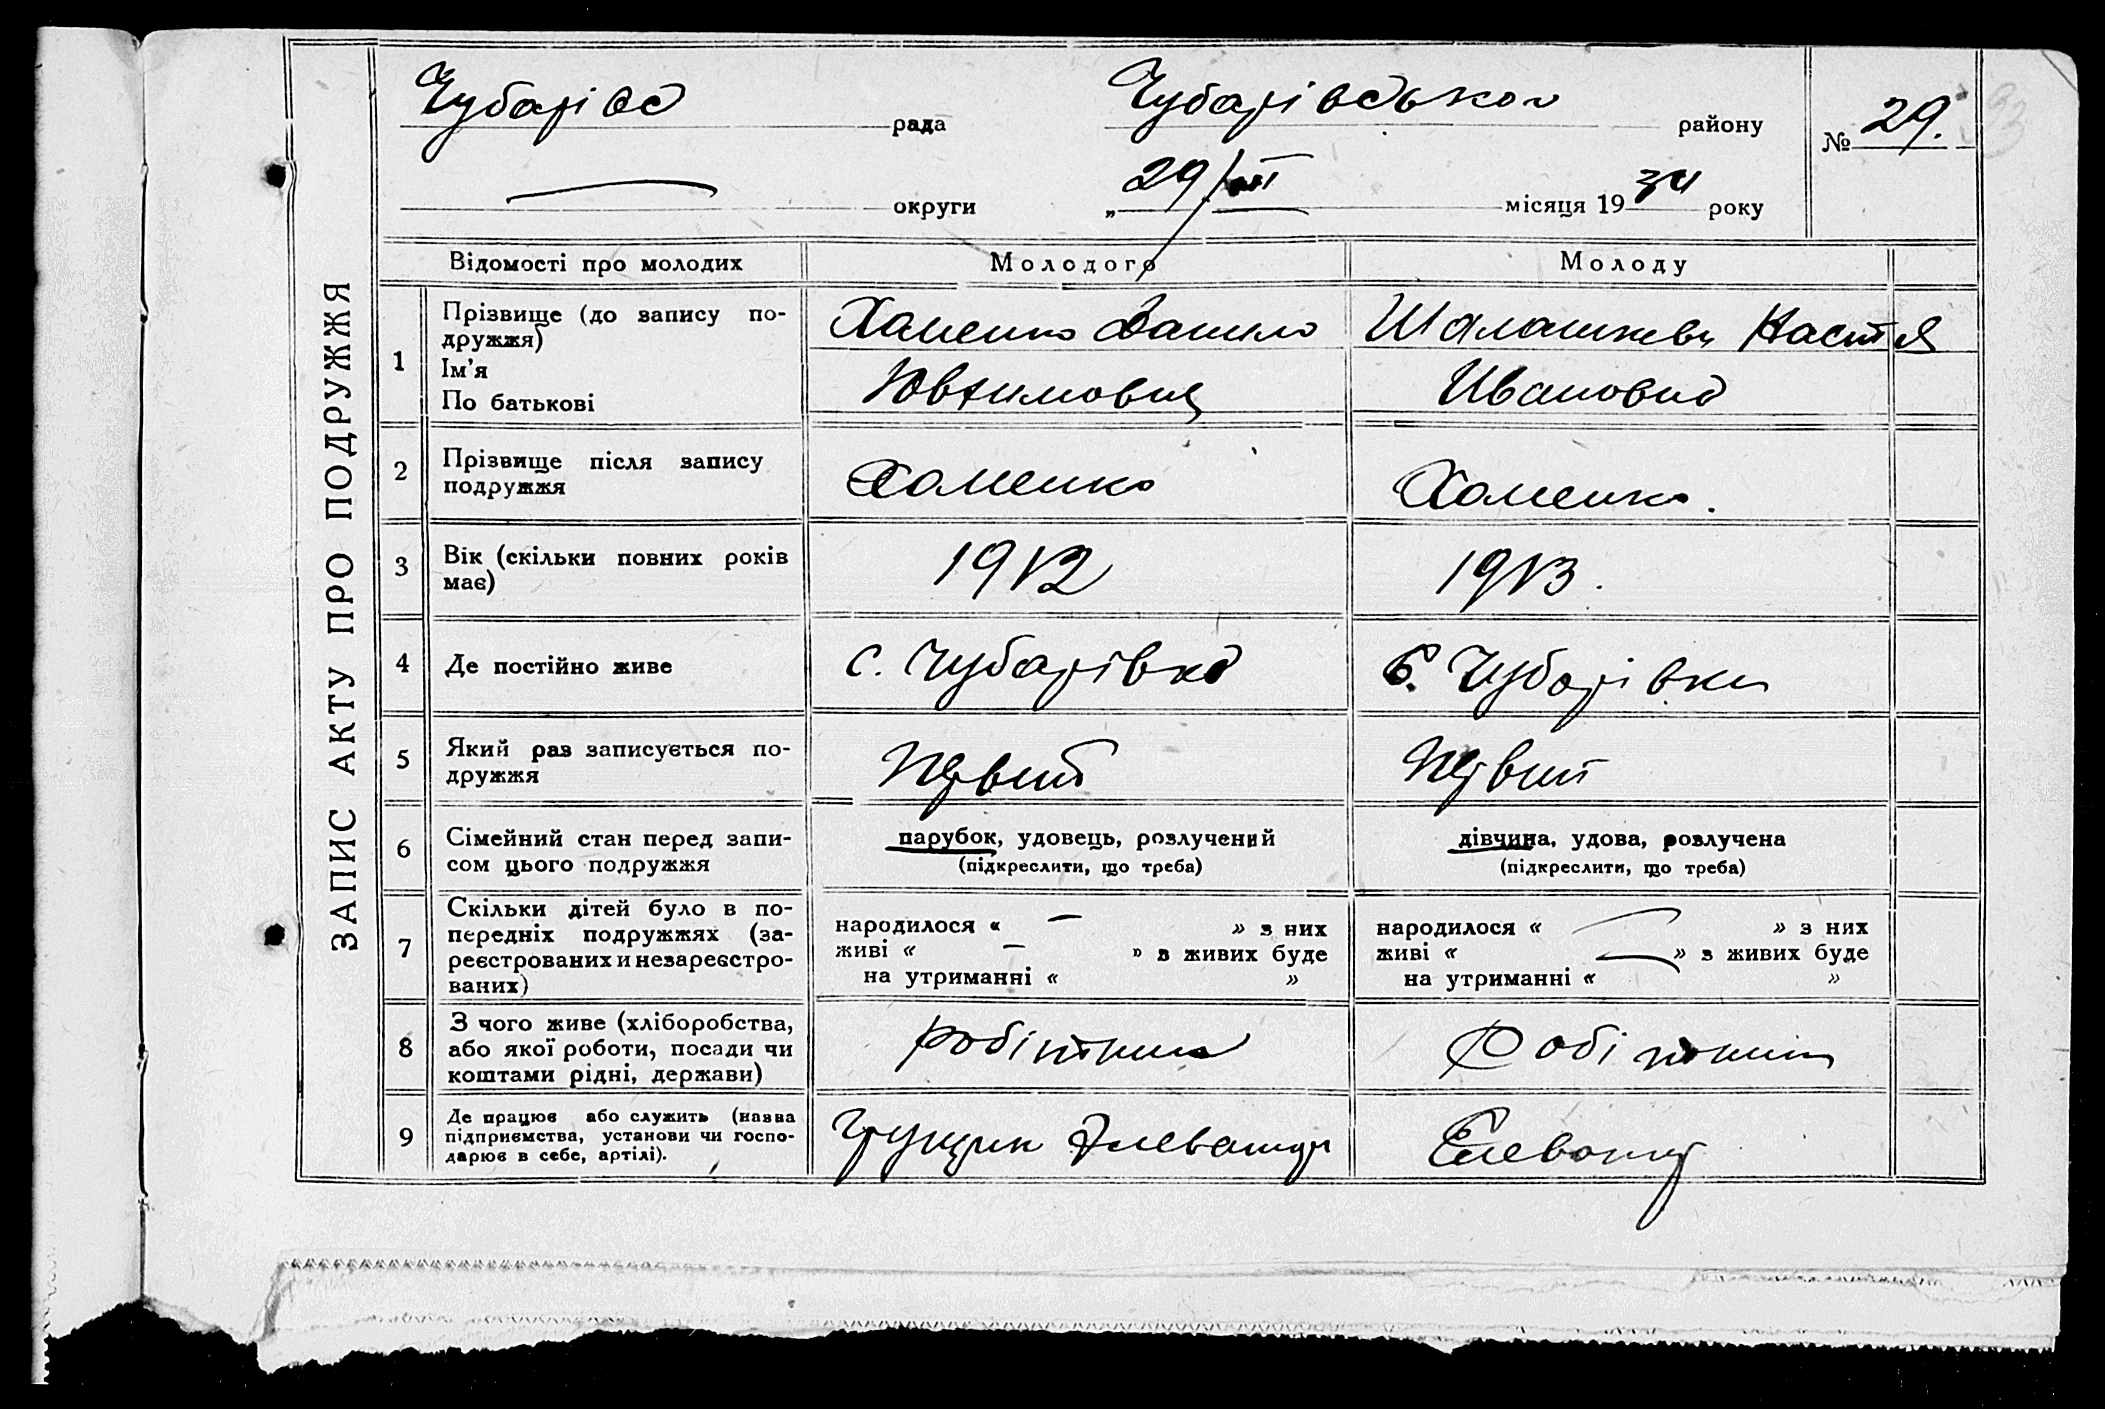 ЗАПИС АКТУ ПРО ПОДРУЖЖЯ
Чубарівс рада Чубарівської району № 29.
округи „ 29/III місяця 19 34 року
Відомості про молодих Молодого Молоду
1 Прізвище (до запису по-
дружжя)
Ім’я
По батькові
Хоменко Данило
Ювхимович
Шаламкевч Настя
Ивановна
2 Прізвище після запису
подружжя
Хоменко
Хоменко.
3 Вік (скільки повних років
має)
1912
1913.
4 Де постійно живе
с. Чубарівка
с. Чубарівки
5 Який раз записується по-
дружжя
Первий
Первий
6 Сімейний стан перед запи-
сом цього подружжя
парубок, удовець, розлучений
(підкреслити, що треба)
дівчина, удова, розлучена
(підкреслити, що треба)
7 Скільки дітей було в по-
передніх подружжях (за-
реєстрованих и незареєстро-
ваних)
народилося « — » з них
живі « — » з живих буде
на утриманні « »
народилося « — » з них
живі « — » з живих буде
на утриманні « »
8 З чого живе (хліборобства,
або якої роботи, посади чи
коштами рідні, держави)
робітник
Робітник
9 Де працює або служить (назва
підприємства, установи чи госпо-
дарює в себе, артілі).
Грущик Элеватор
Елеватор